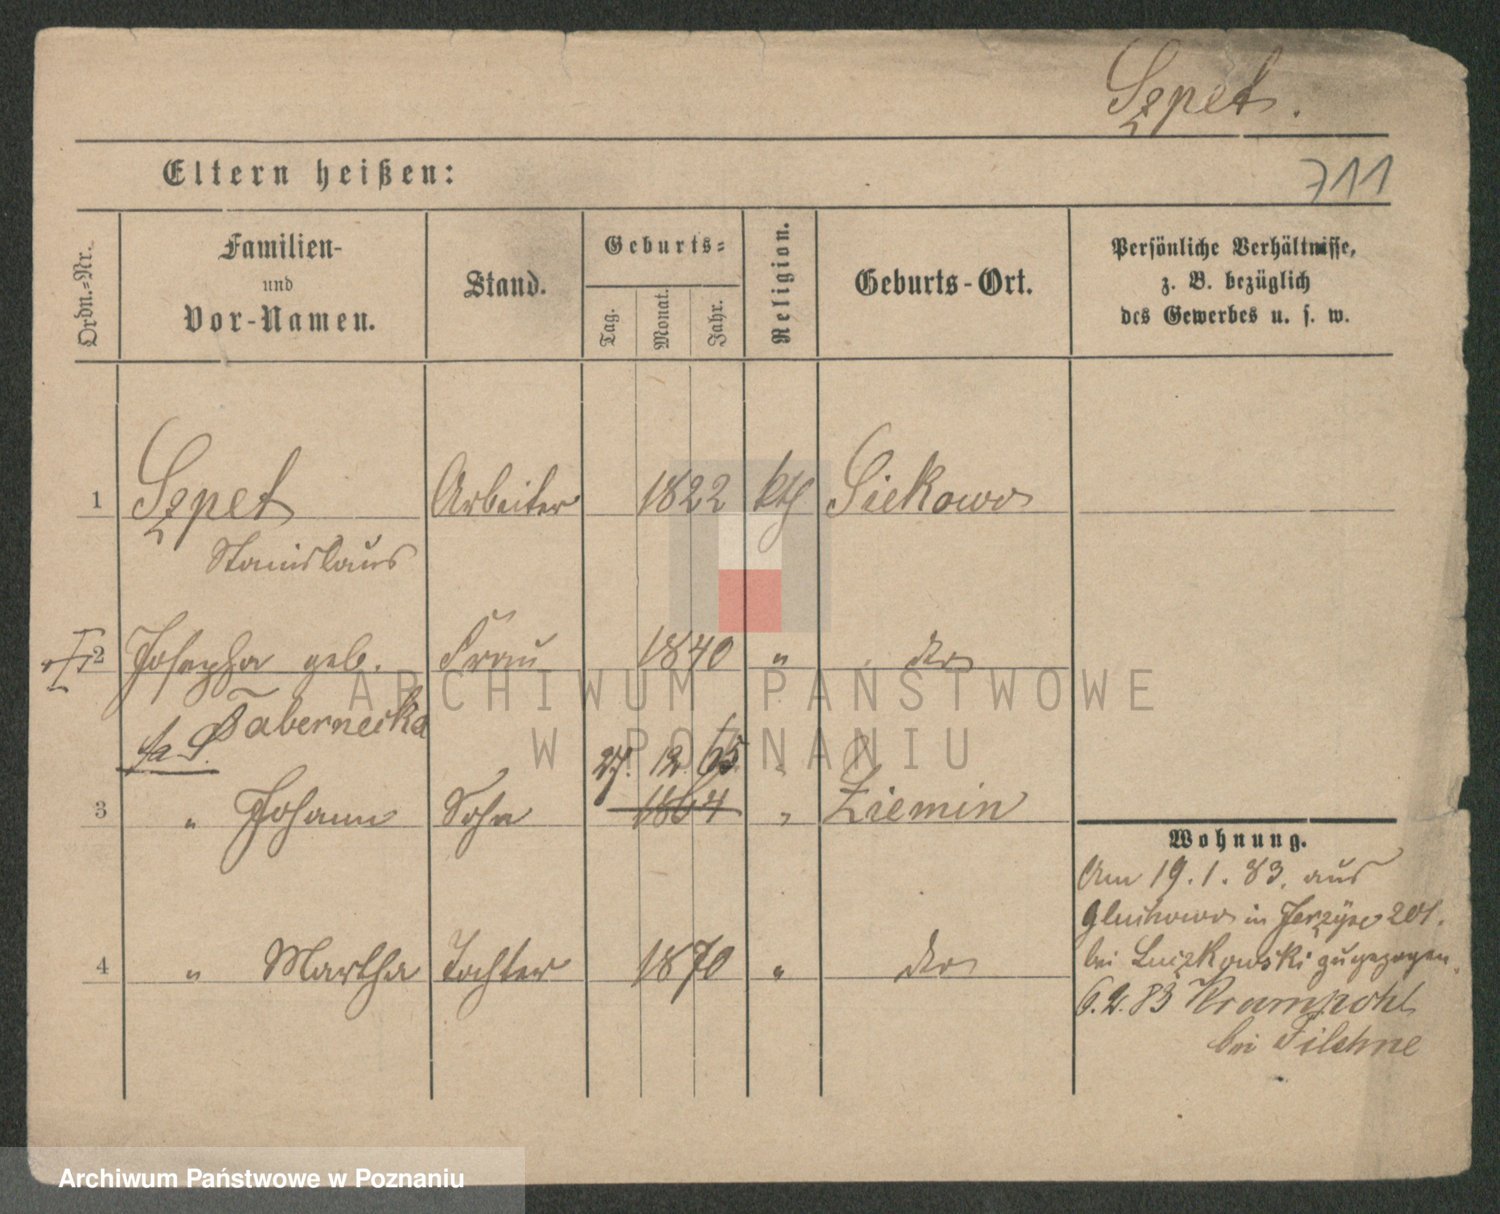 Szpet.
Eltern heißen:
711
Ordn.-Nr.
Familien-
und
Vor-Namen.
Stand.
Geburts-
Tag.
Monat.
Jahr.
Religion.
Geburts-Ort.
Persönliche Verhältnisse,
z. B. bezüglich
des Gewerbes u. s. w.
1 Szpet Arbeiter 1822 kth Siekowo
Stanislaus
2 Josepha geb. Frau 1840 " do
Tabernecka
27. 12. 65
3 " Johann Sohn 1864 " Ziemin
Wohnung.
Am 19. 1. 83. aus
Gluchowo in Jerzyce 201.
4 " Martha Tochter 1870 " do
bei Luczkowski zugezogen.
6.2.83 Krampohl
bei Filehne
ARCHIWUM PAŃSTWOWE
W POZNANIU
Archiwum Państwowe w Poznaniu